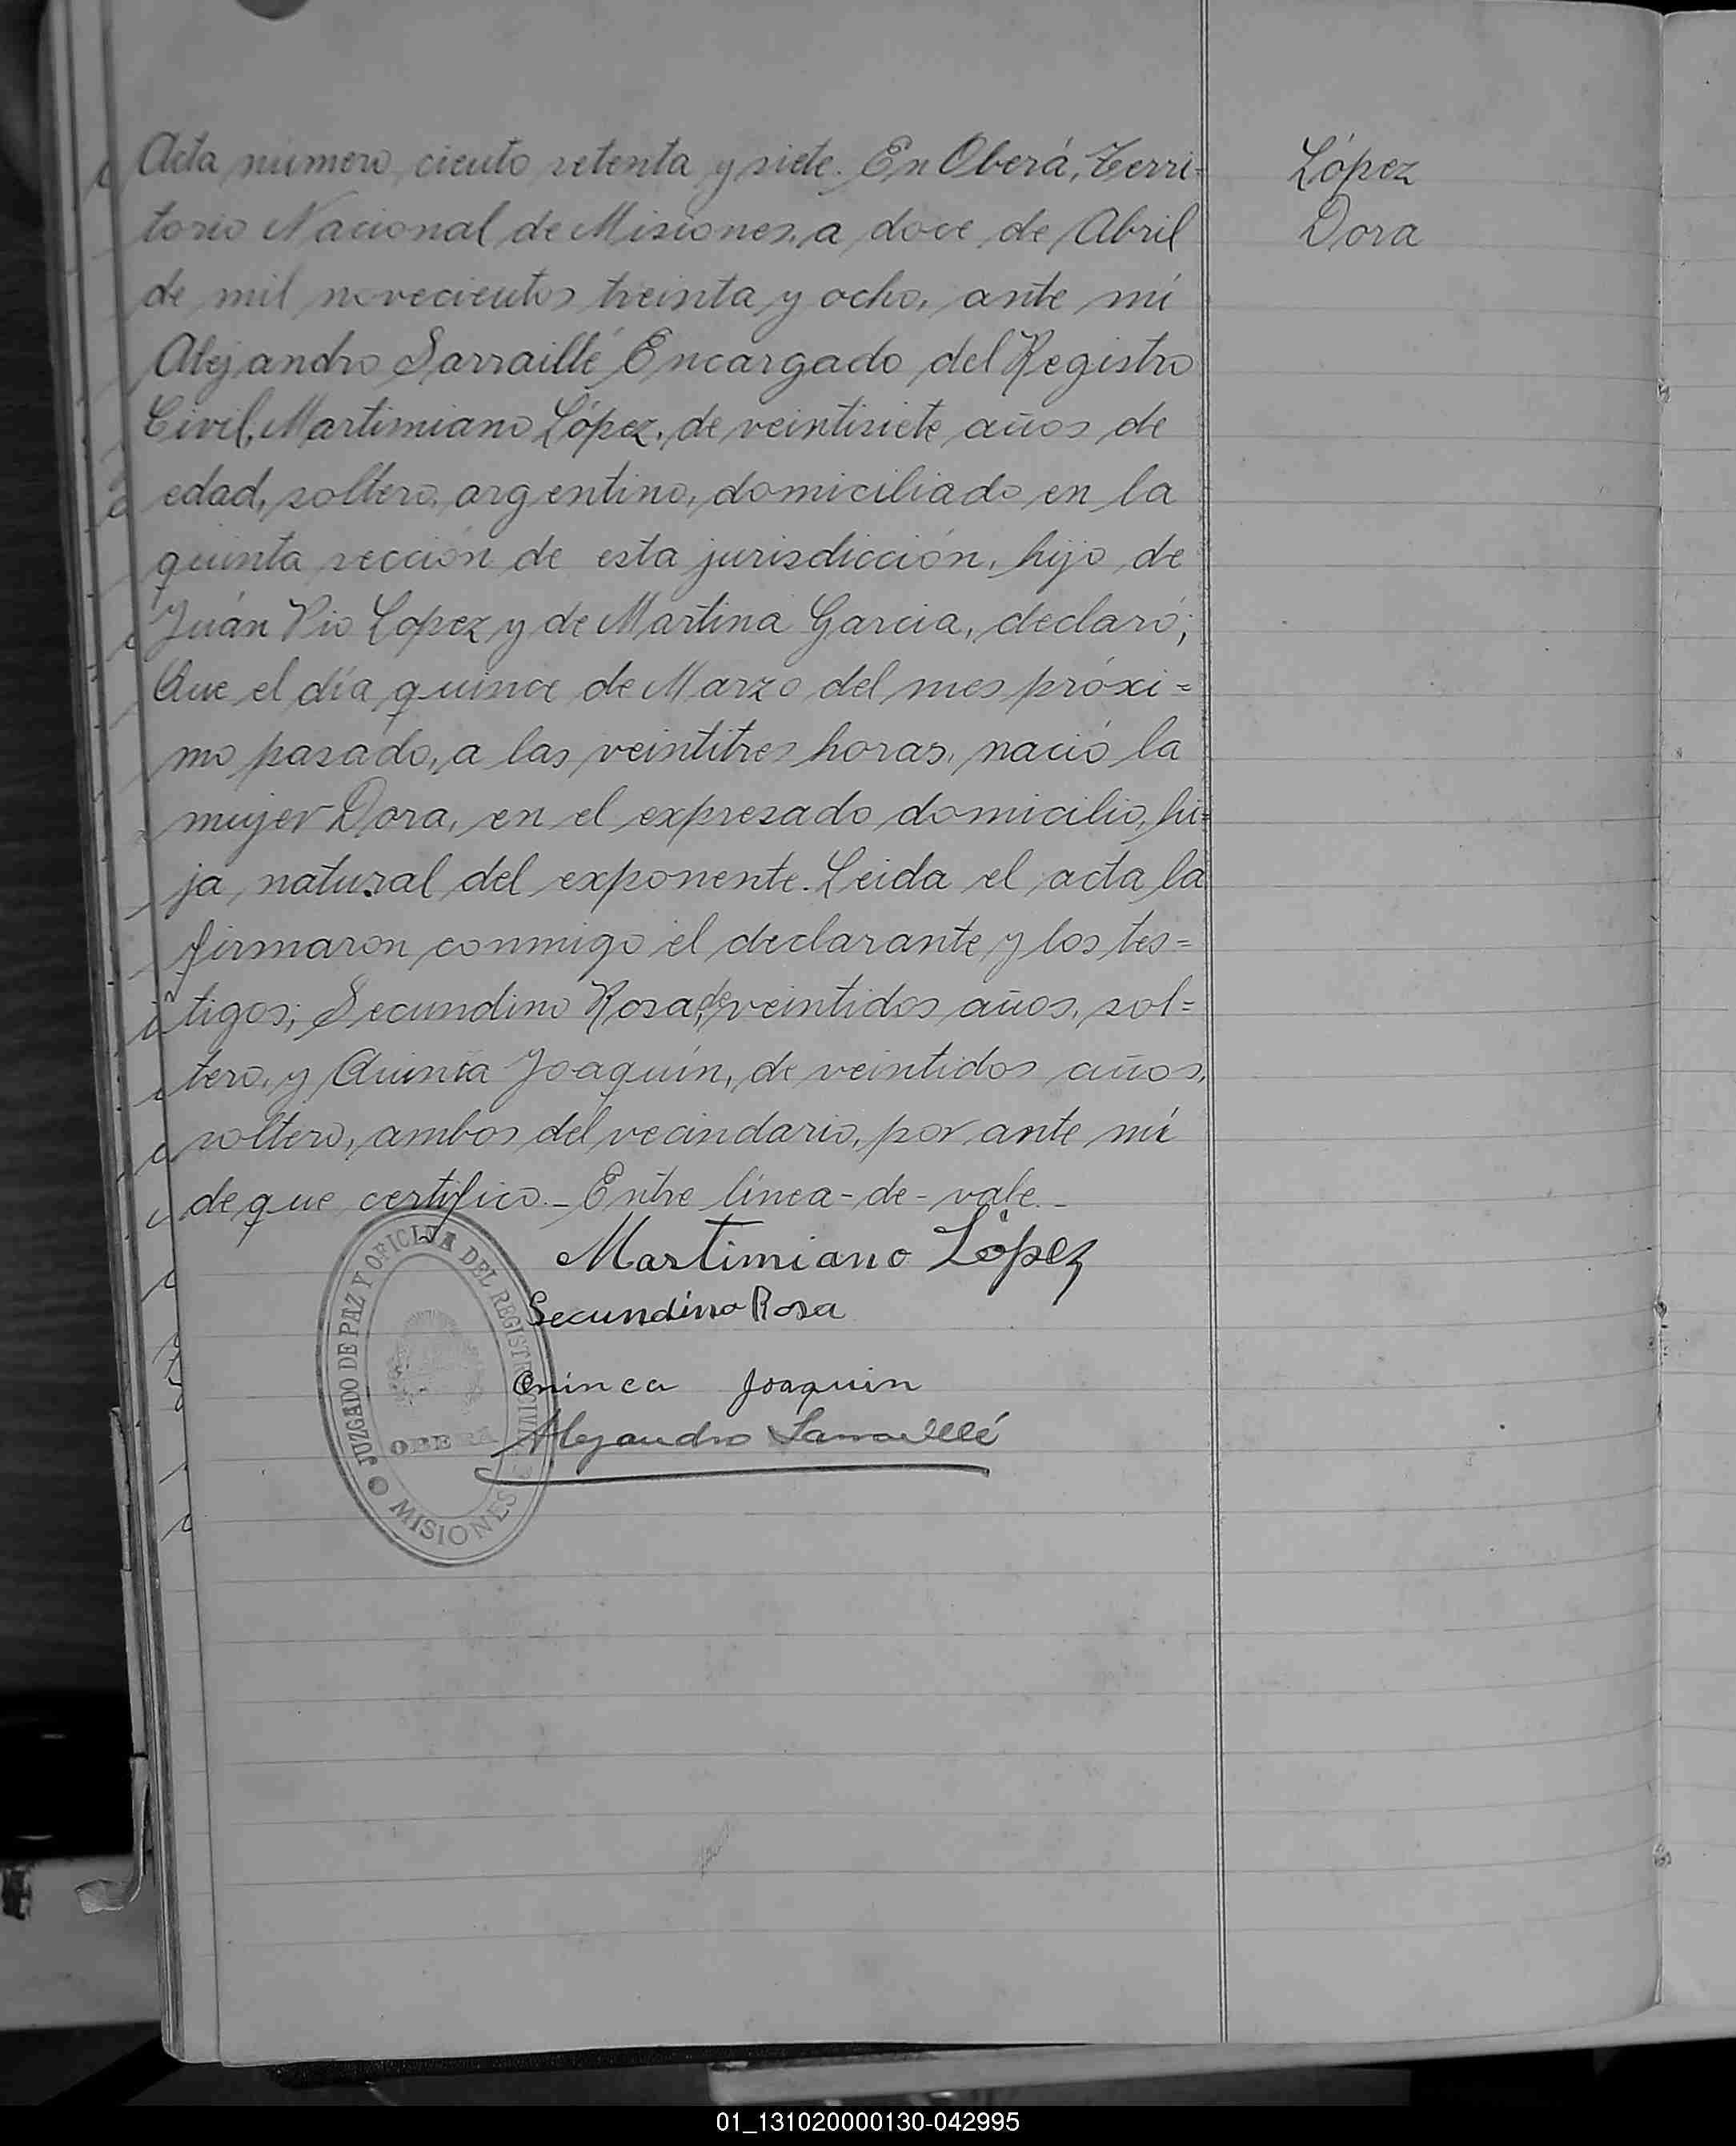 Acta número ciento setenta y siete. En Oberá, Terri-
torio Nacional de Misiones, a doce de Abril
de mil novecientos treinta y ocho, ante mí
Alejandro Sarraillé Encargado del Registro
Civil, Martimiano López, de veintisiete años de
edad, soltero, argentino, domiciliado en la
quinta sección de esta jurisdicción, hijo de
Juán Pio Lopez y de Martina Garcia, declaró;
Que el día quince de Marzo del mes próxi=
mo pasado, a las veintitres horas, nació la
mujer Dora, en el expresado domicilio, hi=
ja natural del exponente. Leida el acta la
firmaron conmigo el declarante y los tes=
tigos; Secundino Rosa, de veintidos años, sol=
tero, y Quinca Joaquín, de veintidos años,
soltero, ambos del vecindario, por ante mí
de que certifico.- Entre línea-de-vale.-
López
Dora
Martimiano López
Secundino Rosa
Joaquin
Alejandro Sarraillé
JUZGADO DE PAZ Y OFICINA DEL REGISTRO CIVIL
OBERA
MISIONES
01_131020000130-042995